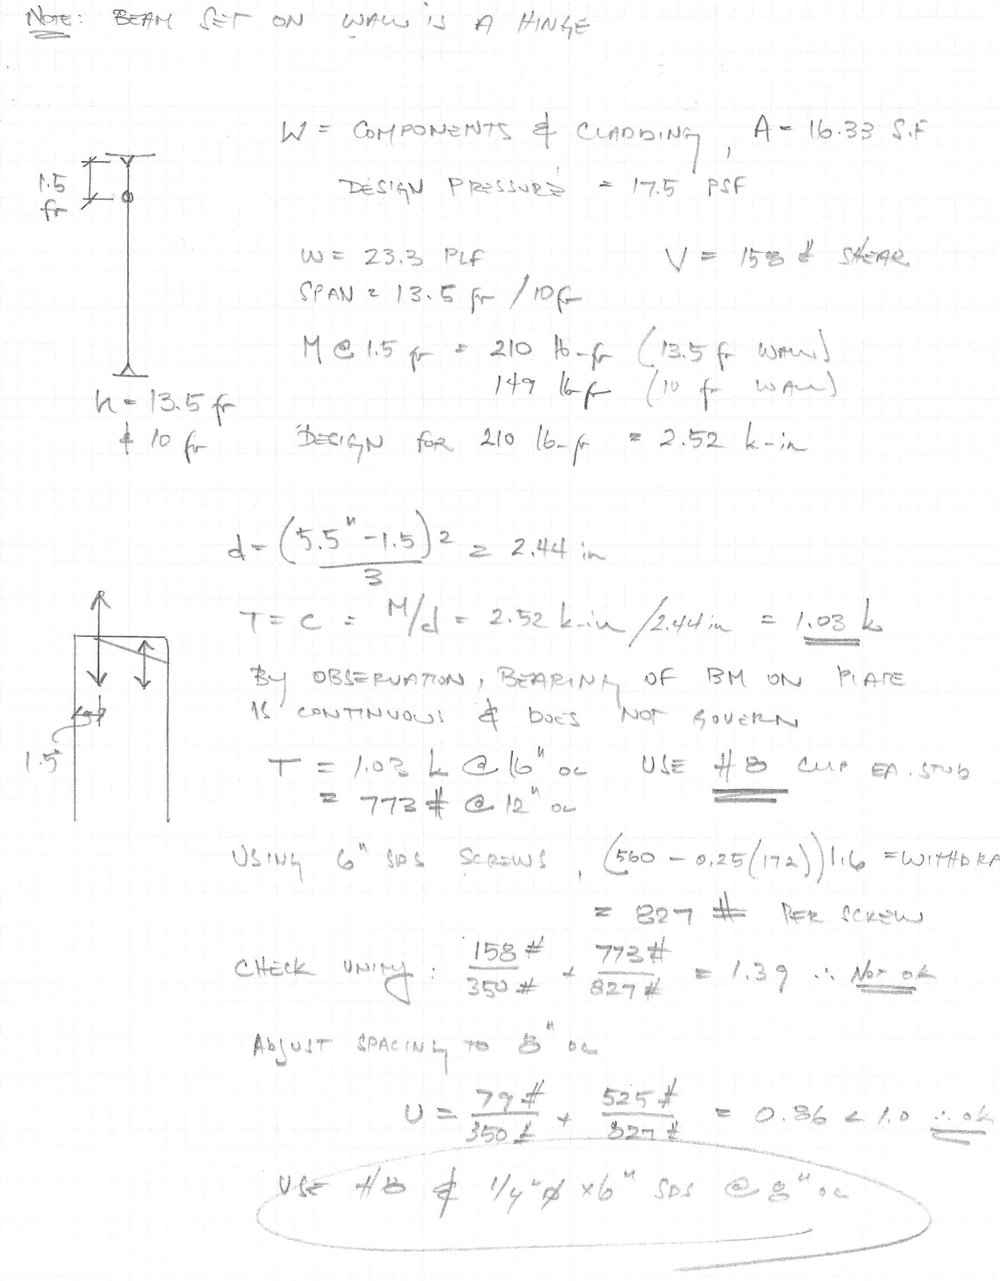 NOTE: BEAM SET ON WALL IS A HINGE
W = COMPONENTS & CLADDING, A = 16.33 S.F
DESIGN PRESSURE = 17.5 PSF
1.5
ft
W = 23.3 PLF V = 158 # SHEAR
SPAN = 13.5 ft / 10 ft
M @ 1.5 ft = 210 lb-ft (13.5 ft WALL)
149 lb-ft (10 ft WALL)
h = 13.5 ft
& 10 ft
DESIGN FOR 210 lb-ft = 2.52 k-in
d = (5.5" - 1.5) 2 / 3 = 2.44 in
T = C = M/d = 2.52 k-in / 2.44 in = 1.03 k
BY OBSERVATION, BEARING OF BM ON PLATE
IS CONTINUOUS & DOES NOT GOVERN
1.5"
T = 1.03 k @ 16" OC USE H8 CLIP EA. STUD
= 773 # @ 12" OC
USING 6" SDS SCREWS, (560 - 0.25(172))1.6 = WITHDRA
= 827 # PER SCREW
CHECK UNITY: 158 # / 350 # + 773 # / 827 # = 1.39 ∴ NOT OK
ADJUST SPACING TO 8" OC
U = 79 # / 350 # + 525 # / 827 # = 0.86 < 1.0 ∴ OK
USE H8 & 1/4" ϕ x 6" SDS @ 8" OC